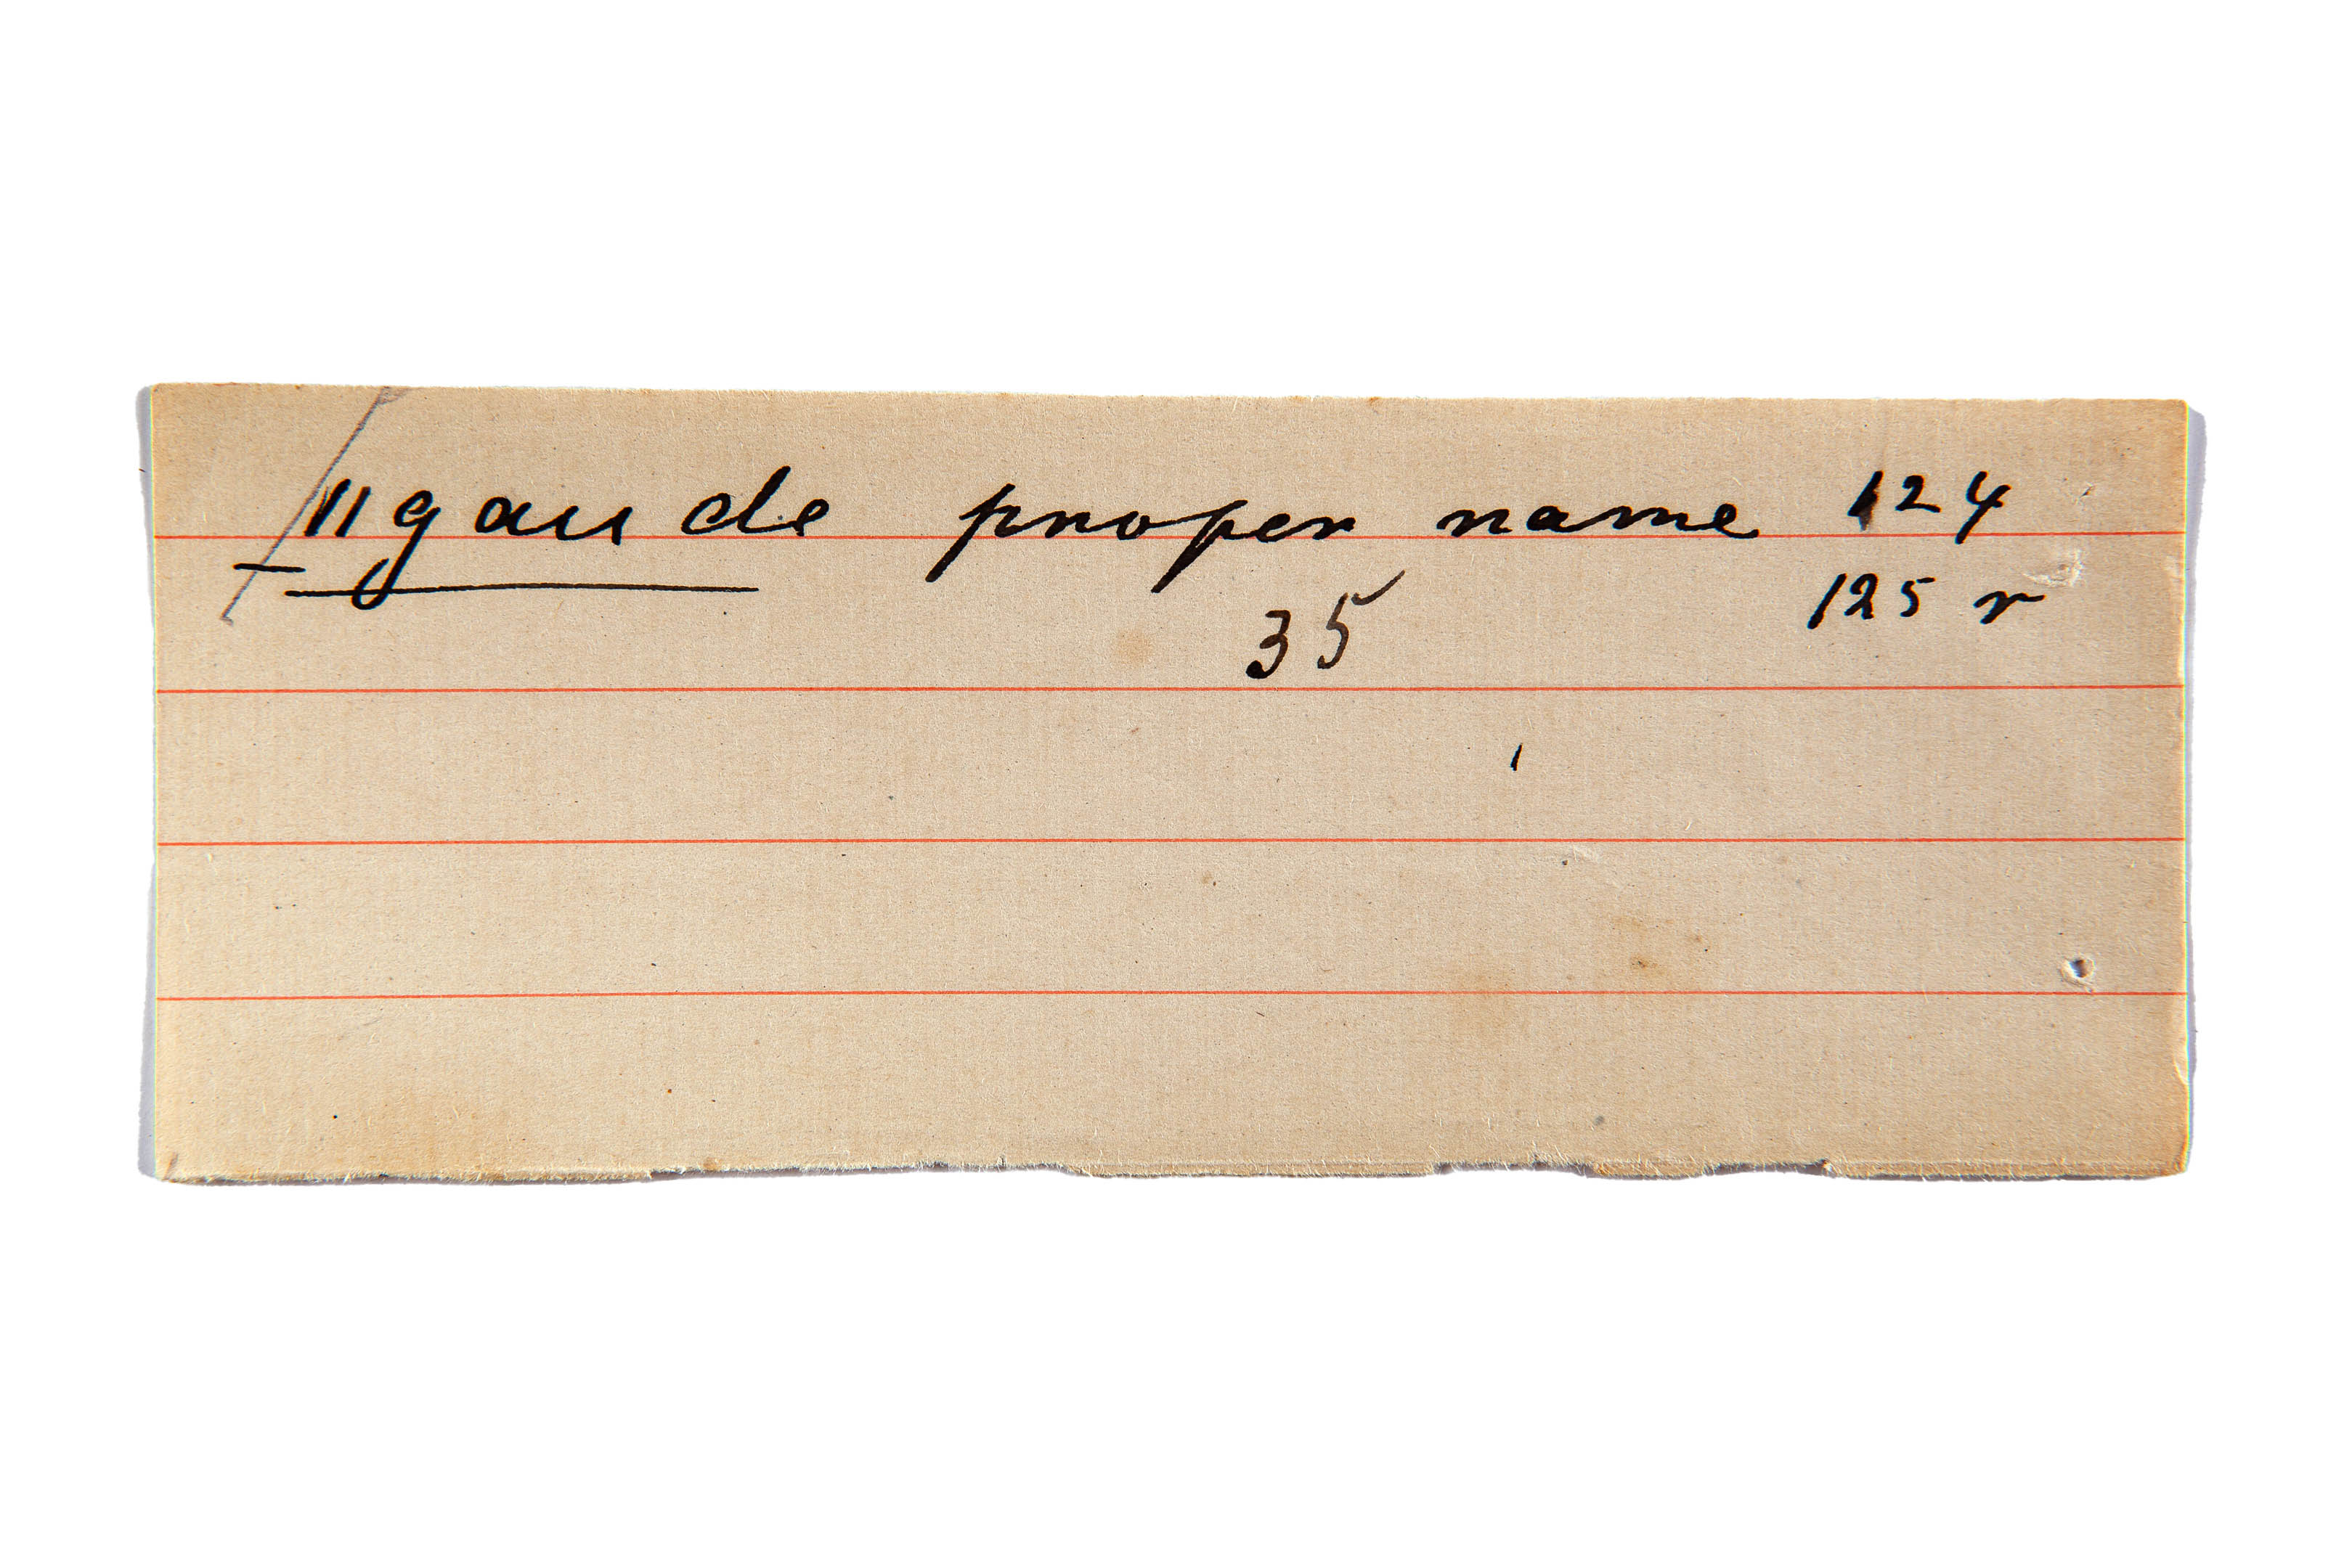 ǁgau de proper name 124
125 r
35